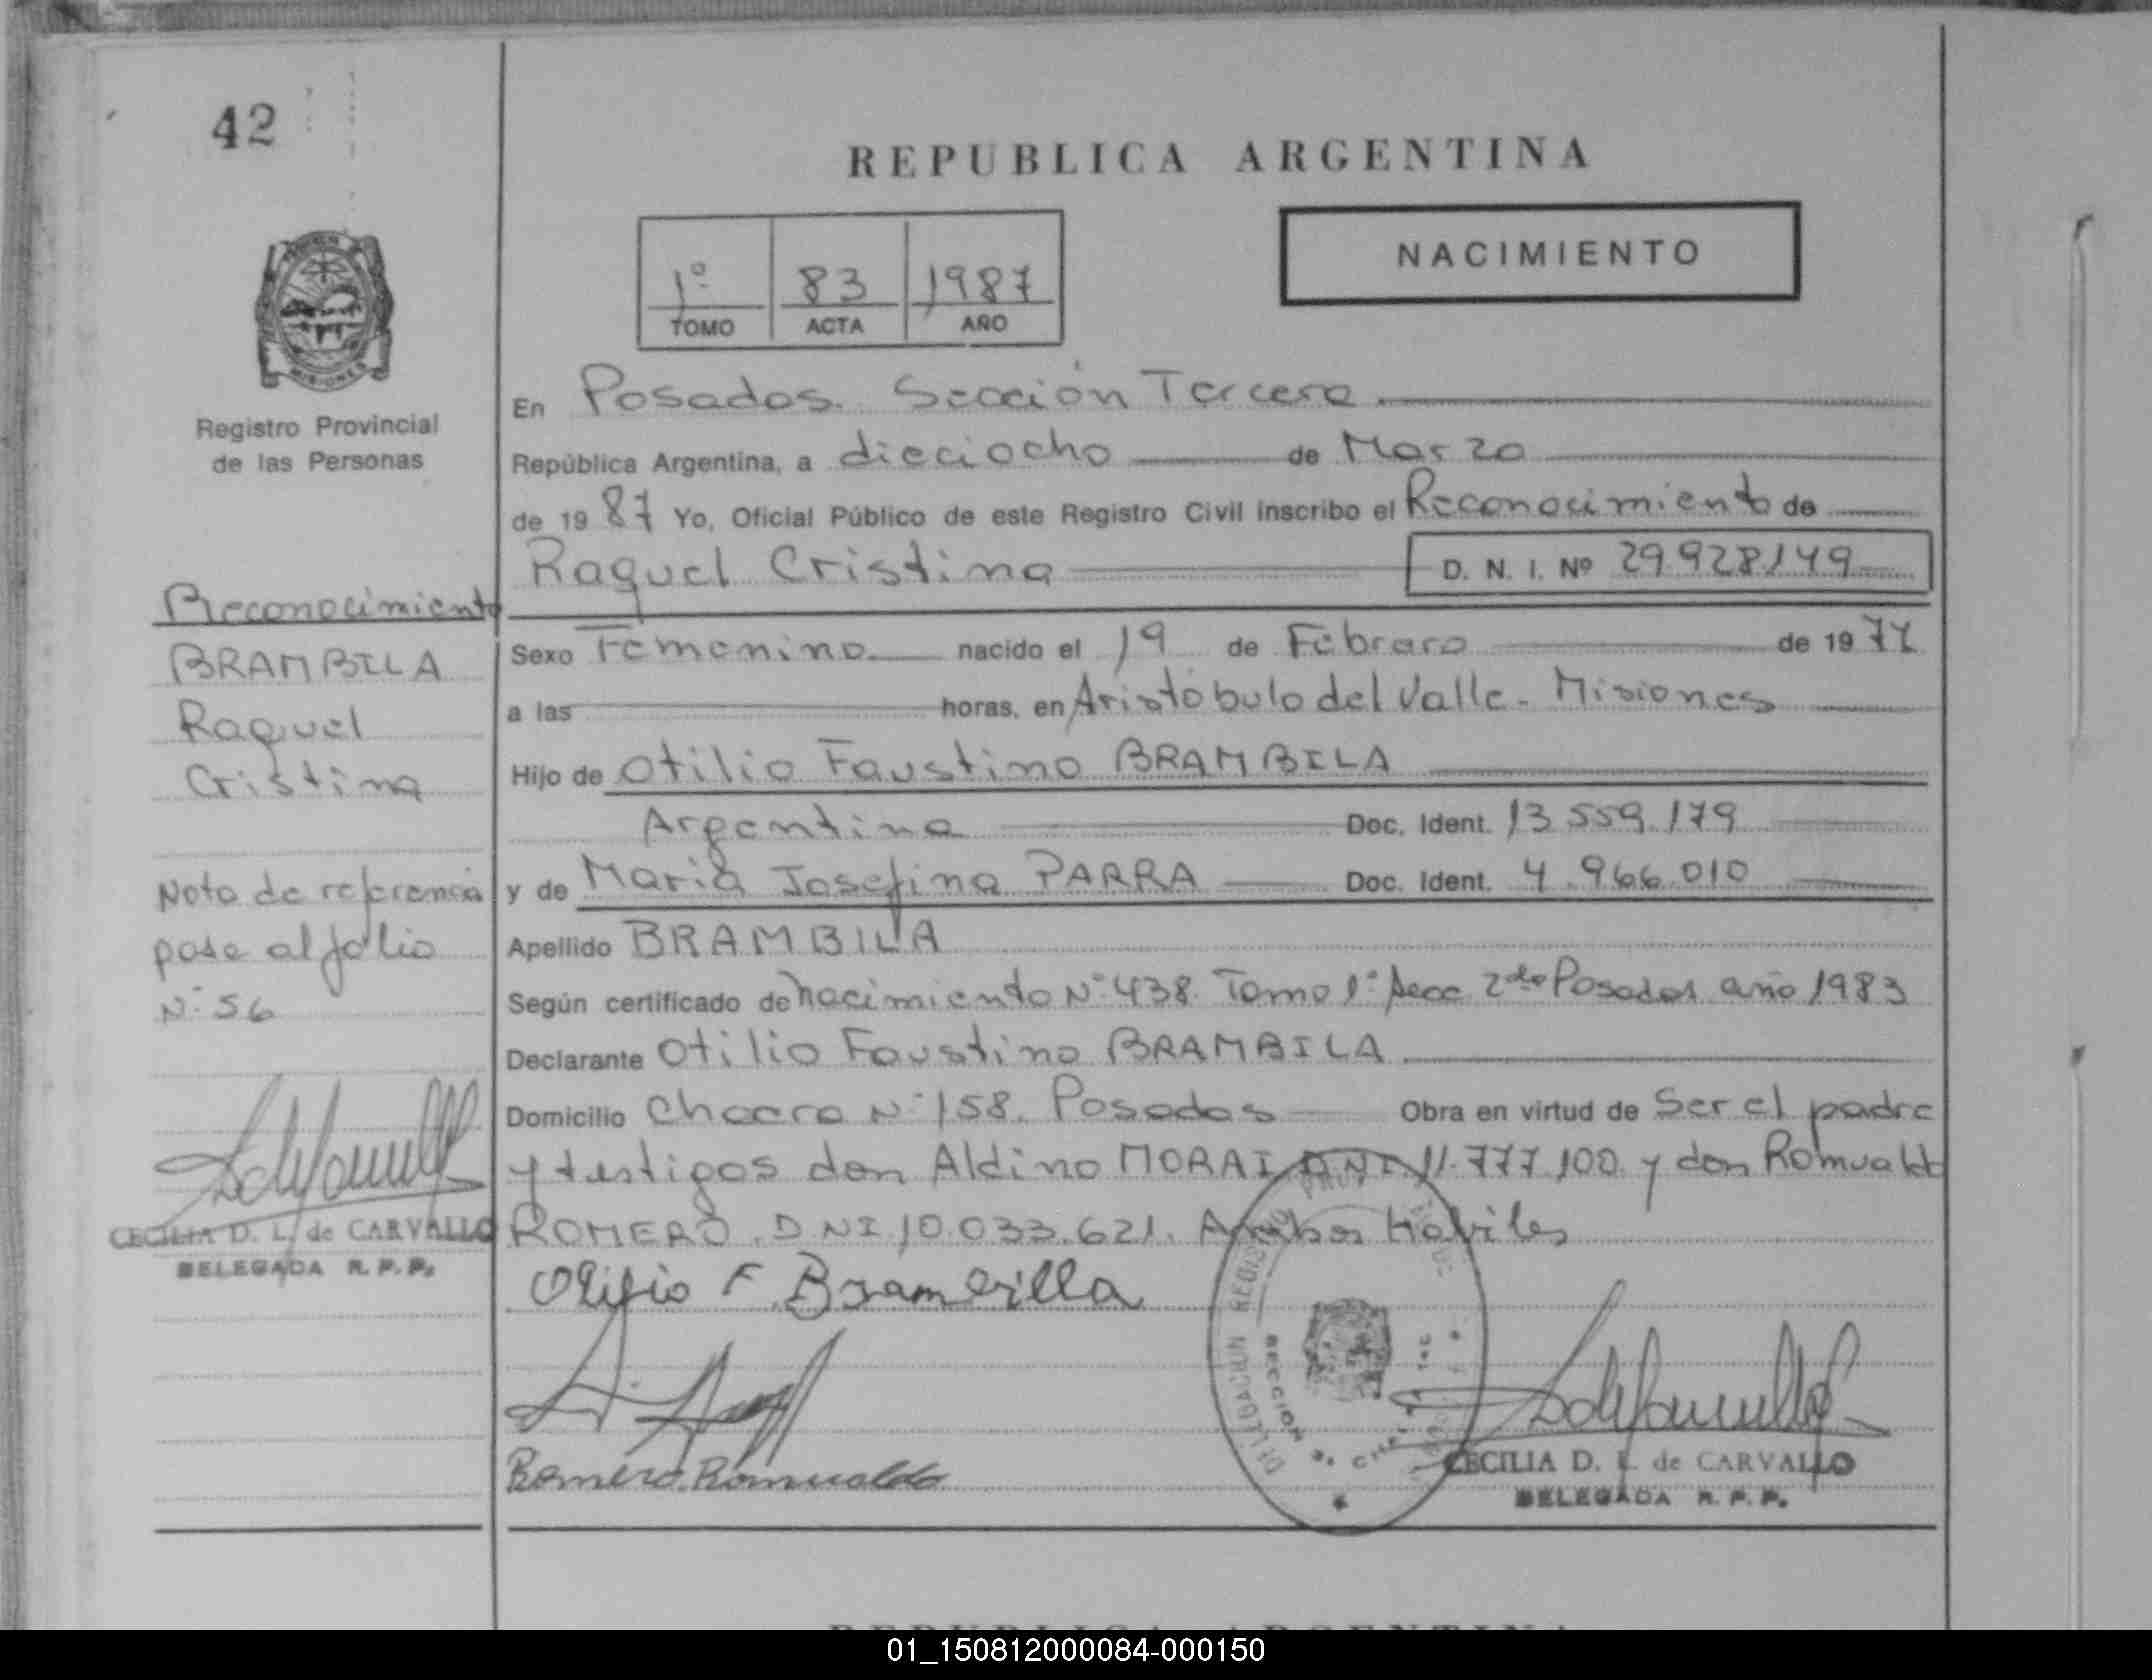 42
REPUBLICA ARGENTINA
NACIMIENTO
1º 83 1987
TOMO ACTA AÑO
MISIONES
Registro Provincial
de las Personas
En Posadas. Sección Tercera.
República Argentina, a dieciocho de Marzo
de 19 87 Yo, Oficial Público de este Registro Civil inscribo el Reconocimiento de
Raquel Cristina D. N. I. Nº 29.928.149
Sexo Femenino nacido el 19 de Febrero de 19 77
a las horas, en Aristóbulo del Valle - Misiones
Hijo de Otilio Faustino BRAMBILA
Argentina Doc. Ident. 13.559.179
y de Maria Josefina PARRA Doc. Ident. 4.966.010
Apellido BRAMBILA
Según certificado de nacimiento Nº 438 Tomo 1º Secc 2da Posadas año 1983
Declarante Otilio Faustino BRAMBILA
Domicilio Chacra Nº 158. Posadas Obra en virtud de Ser el padre
y testigos don Aldino MORAI DNI 11.777.100 y don Romualdo
ROMERO. DNI 10.033.621. Ambos Habiles
Otilio F Brambilla
Romero Romualdo
DELEGACION
SECCION
CECILIA D. L. de CARVALLO
DELEGADA R. P. P.
Reconocimiento
BRAMBILA
Raquel
Cristina
Nota de referencia
pase al folio
Nº 56
CECILIA D. L. de CARVALLO
DELEGADA R. P. P.
REPUBLICA ARGENTINA
01_150812000084-000150